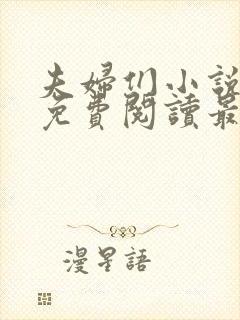 夫婦们小說
免費閱讀最
漫星語